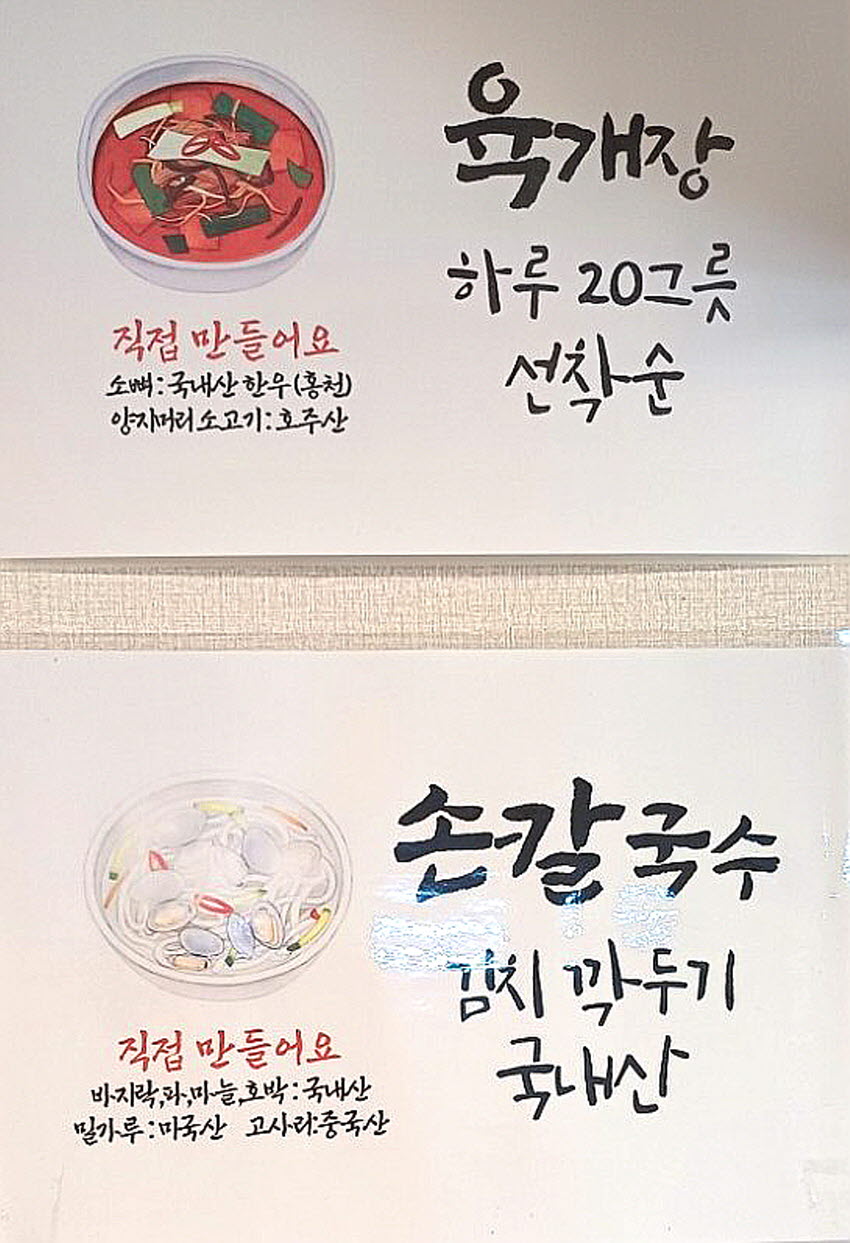 육개장
하루 20그릇
선착순
직접 만들어요
소뼈 : 국내산 한우 (홍천)
양지머리 소고기 : 호주산
손칼국수
김치 깍두기
국내산
직접 만들어요
바지락,파,마늘,호박 : 국내산
밀가루 : 미국산 고사리:중국산